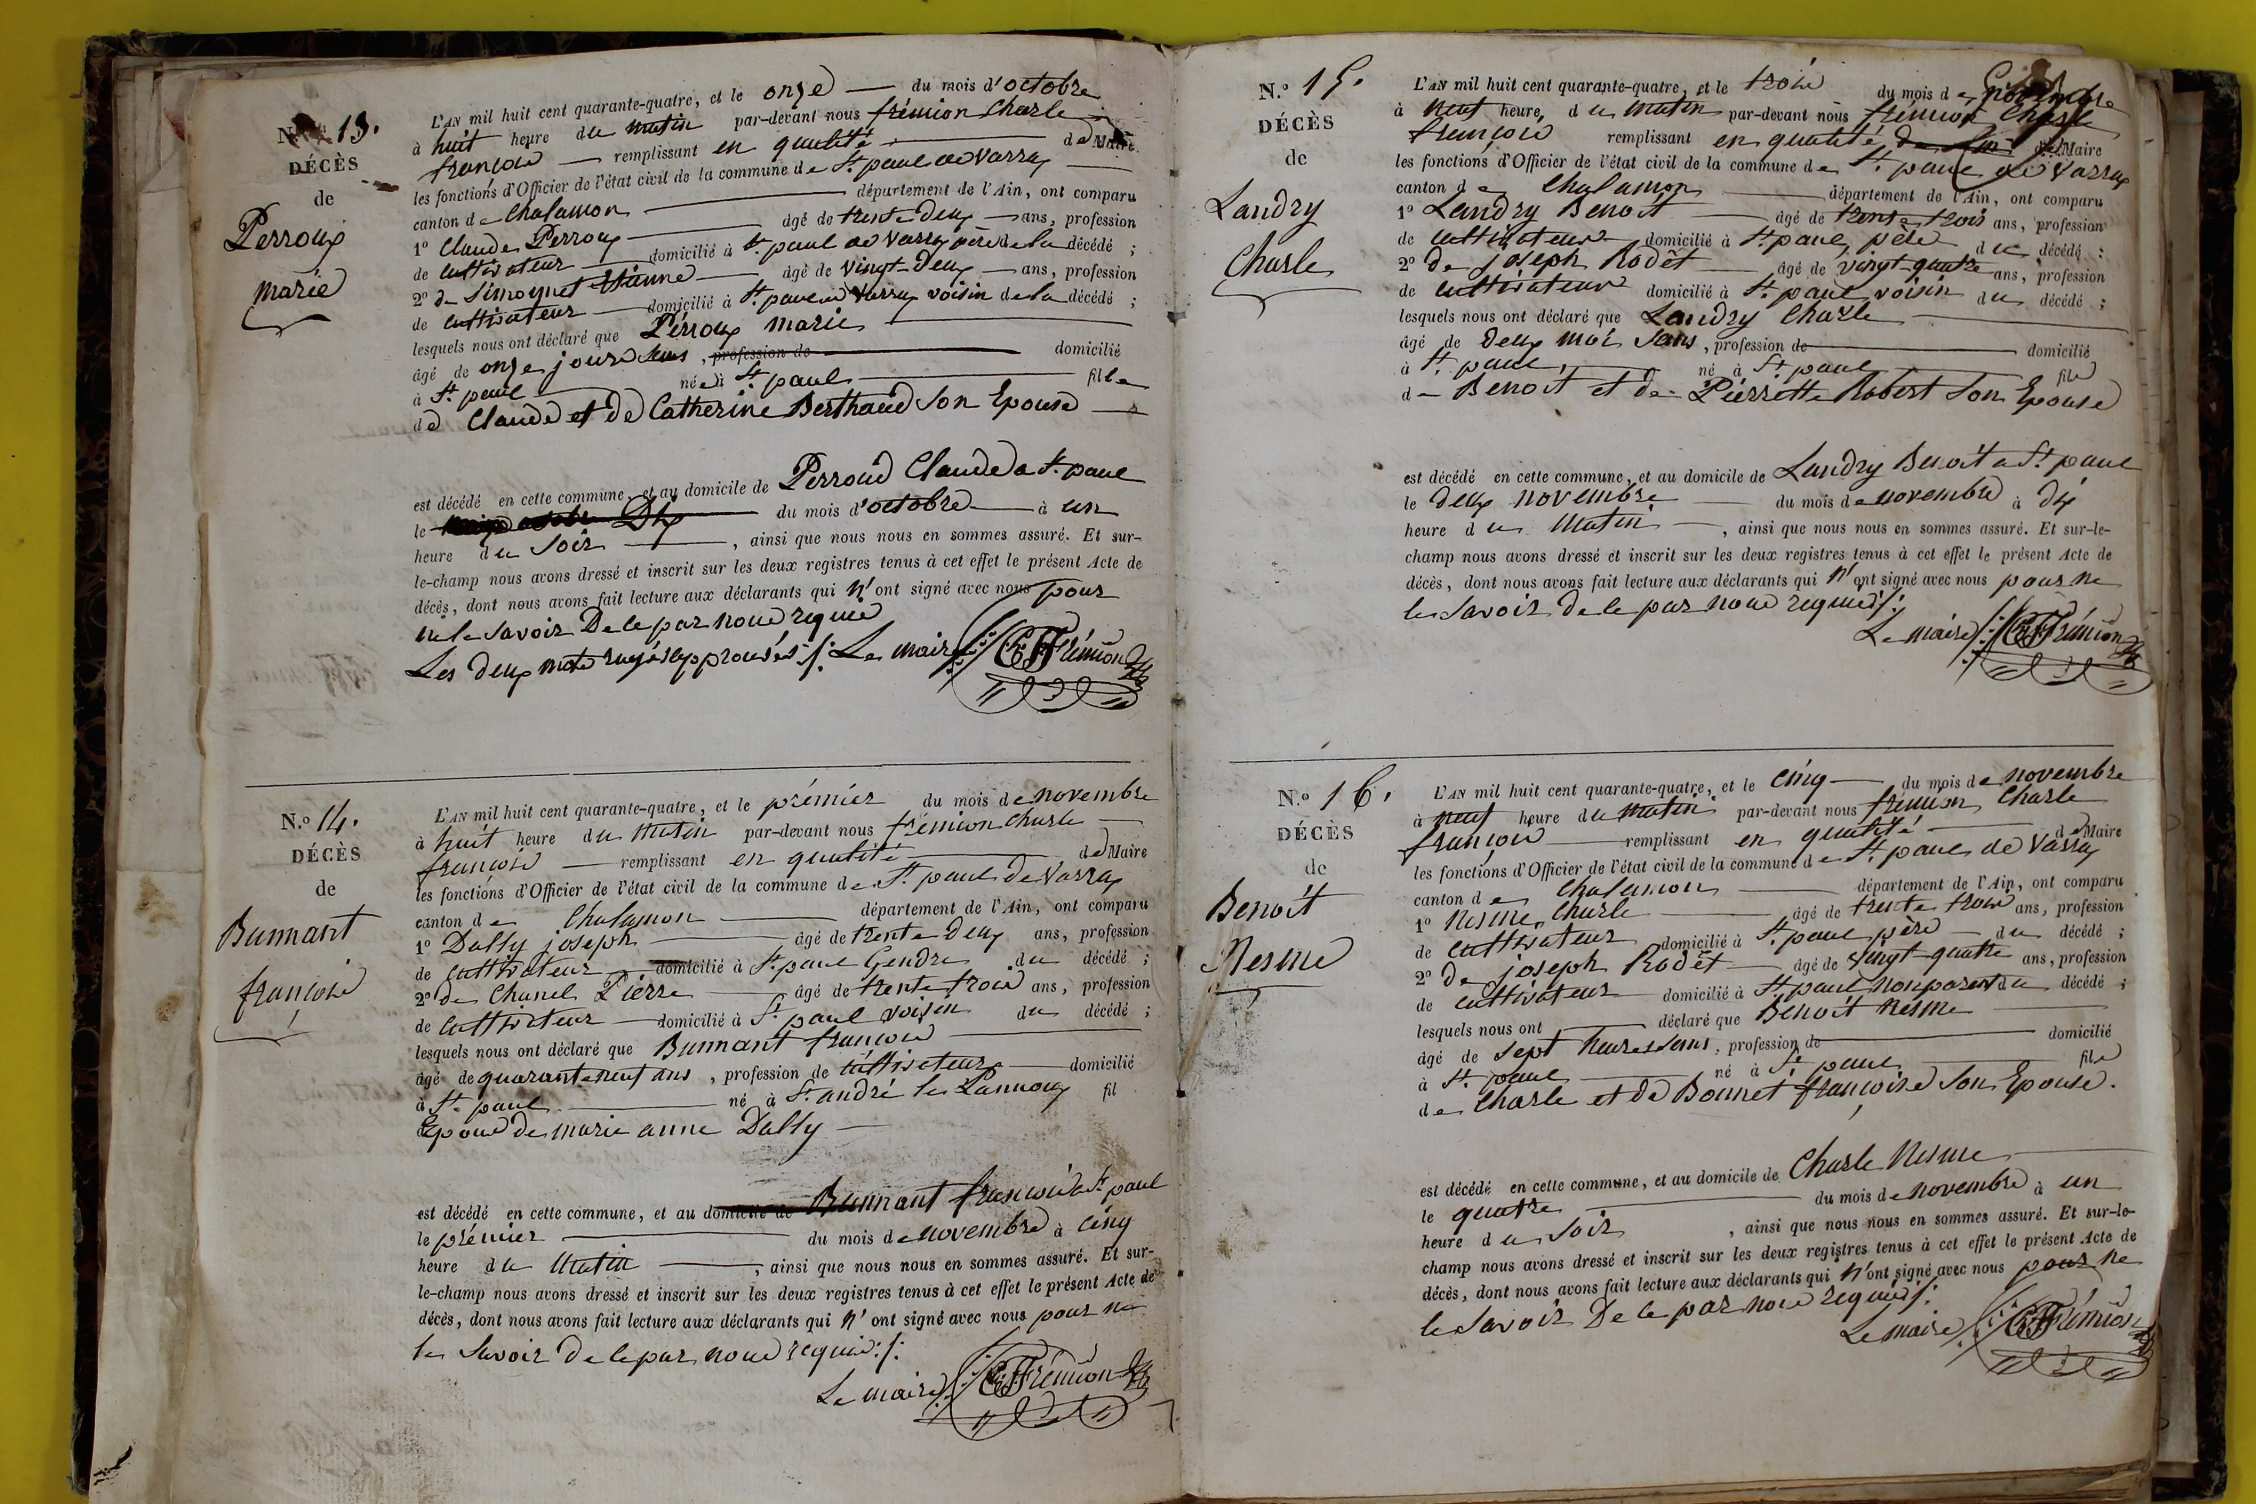 N.º 13.
DÉCÈS
de
Perroux
marie
L'AN mil huit cent quarante-quatre, et le onze du mois d'octobre
à huit heure du matin par-devant nous frémion Charle
françois remplissant en qualité de Maire
les fonctions d'Officier de l'état civil de la commune de St. paul de Varax
canton de Chalamon département de l'Ain, ont comparu
1º Claude Perroux âgé de trente Deux ans, profession
de Cultivateur domicilié à St. paul de Varax père de la décédé ;
2º de Simonnet Etienne âgé de vingt-Deux ans, profession
de Cultivateur domicilié à St. paul de Varax voisin de la décédé ;
lesquels nous ont déclaré que Perroux marie
âgé de onze jours sans, profession de domicilié
à St. paul née à St. paul fille
de Claude et de Catherine Berthaud Son Epouse
est décédé en cette commune, et au domicile de Perroud Claude a St. paul
le Dix du mois d'octobre à un
heure du Soir, ainsi que nous nous en sommes assuré. Et sur-
le-champ nous avons dressé et inscrit sur les deux registres tenus à cet effet le présent Acte de
décès, dont nous avons fait lecture aux déclarants qui n'ont signé avec nous pour
ne le Savoir De le par nous requis
Les Deux mots rayés approuvés ./. Le maire CF Frémion
N.º 14.
DÉCÈS
de
Bunnant
françois
L'AN mil huit cent quarante-quatre, et le prémier du mois de novembre
à huit heure du matin par-devant nous frémion Charle
françois remplissant en qualité de Maire
les fonctions d'Officier de l'état civil de la commune de St. paul de Varax
canton de Chalamon département de l'Ain, ont comparu
1º Dally joseph âgé de trente Deux ans, profession
de Cultivateur domicilié à St. paul Gendre du décédé ;
2º de Chanel Pierre âgé de trente trois ans, profession
de Cultivateur domicilié à St. paul voisin du décédé ;
lesquels nous ont déclaré que Bunnant françois
âgé de quarante neuf ans, profession de Cultivateur domicilié
à St. paul né à St. andré le Pannoux fil
Epoux de marie anne Dally
est décédé en cette commune, et au domicile de Bunnant francois a St. paul
le prémier du mois de novembre à cinq
heure du Matin, ainsi que nous nous en sommes assuré. Et sur-
le-champ nous avons dressé et inscrit sur les deux registres tenus à cet effet le présent Acte de
décès, dont nous avons fait lecture aux déclarants qui n'ont signé avec nous pour ne
le Savoir De le par nous requis ./.
Le maire CF Frémion
N.º 15.
DÉCÈS
de
Landry
Charle
L'AN mil huit cent quarante-quatre, et le trois du mois de novembre
à neuf heure, du matin par-devant nous frémion Charle
françois remplissant en qualité de Maire
les fonctions d'Officier de l'état civil de la commune de St. paul de Varax
canton de Chalamon département de l'Ain, ont comparu
1º Landry Benoit âgé de trente trois ans, profession
de Cultivateur domicilié à St. paul, père du décédé ;
2º de joseph Rodêt âgé de vingt-quatre ans, profession
de Cultivateur domicilié à St. paul voisin du décédé ;
lesquels nous ont déclaré que Landry Charle
âgé de Deux mois Sans, profession de domicilié
à St. paul, né à St. paul fils
de Benoit et de Piérrette Robert Son Epouse
est décédé en cette commune, et au domicile de Landry Benoit a St. paul
le Deux novembre du mois de novembre à Dix
heure du Matin, ainsi que nous nous en sommes assuré. Et sur-le-
champ nous avons dressé et inscrit sur les deux registres tenus à cet effet le présent Acte de
décès, dont nous avons fait lecture aux déclarants qui n'ont signé avec nous pour ne
le Savoir De le par nous requis ./.
Le maire CF Frémion
N.º 16.
DÉCÈS
de
Benoit
Nesme
L'AN mil huit cent quarante-quatre, et le cinq du mois de novembre
à neuf heure du matin par-devant nous frémion Charle
françois remplissant en qualité de Maire
les fonctions d'Officier de l'état civil de la commune de St. paul de Varax
canton de Chalamon département de l'Ain, ont comparu
1º Nesme Charle âgé de trente trois ans, profession
de Cultivateur domicilié à St. paul père du décédé ;
2º de joseph Rodêt âgé de vingt-quatre ans, profession
de Cultivateur domicilié à St. paul non parent du décédé ;
lesquels nous ont déclaré que Benoit Nésme
âgé de sept heures sans, profession de domicilié
à St. paul né à St. paul fils
de Charle et de Bonnet françoise Son Epouse.
est décédé en cette commune, et au domicile de Charle Nesme
le quatre du mois de novembre à un
heure du Soir, ainsi que nous nous en sommes assuré. Et sur-le-
champ nous avons dressé et inscrit sur les deux registres tenus à cet effet le présent Acte de
décès, dont nous avons fait lecture aux déclarants qui n'ont signé avec nous pour ne
le Savoir De le par nous requis ./.
Le maire CF Frémion